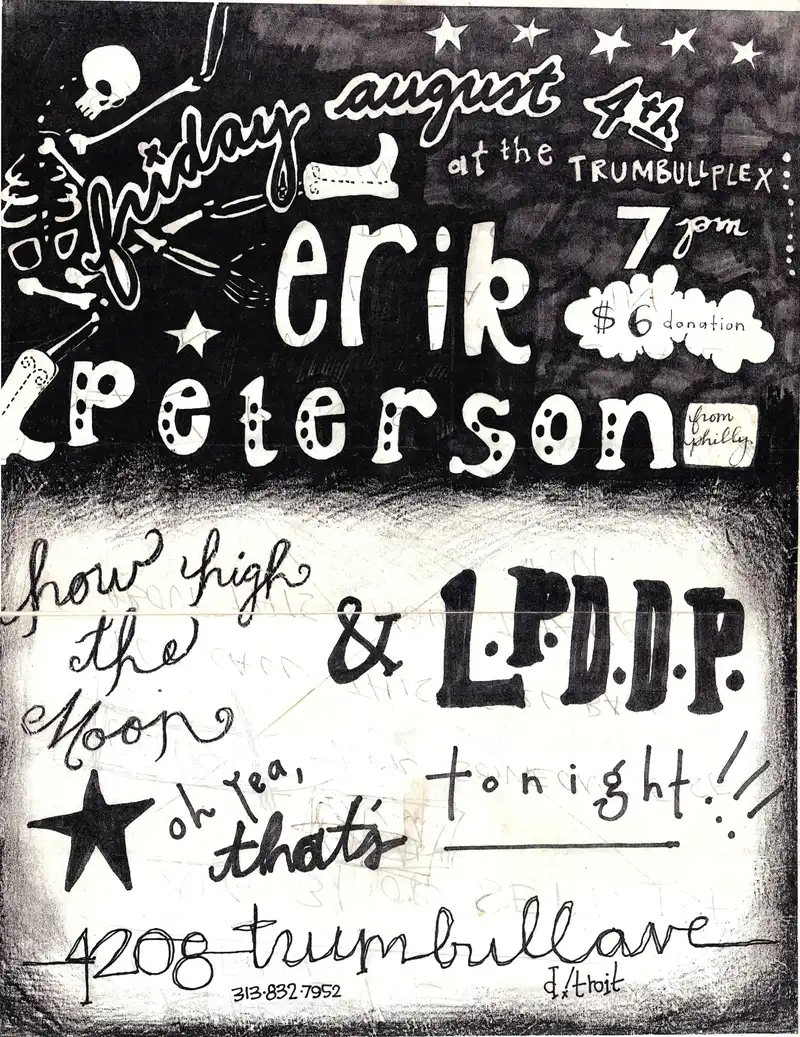 friday august 4th
at the TRUMBULLPLEX
7pm
erik
$6 donation
peterson
from
philly
how high
the
Moon
& L.P.D.D.P.
oh yea,
that's
tonight!!!
4208 trumbull ave
313·832·7952
d!troit